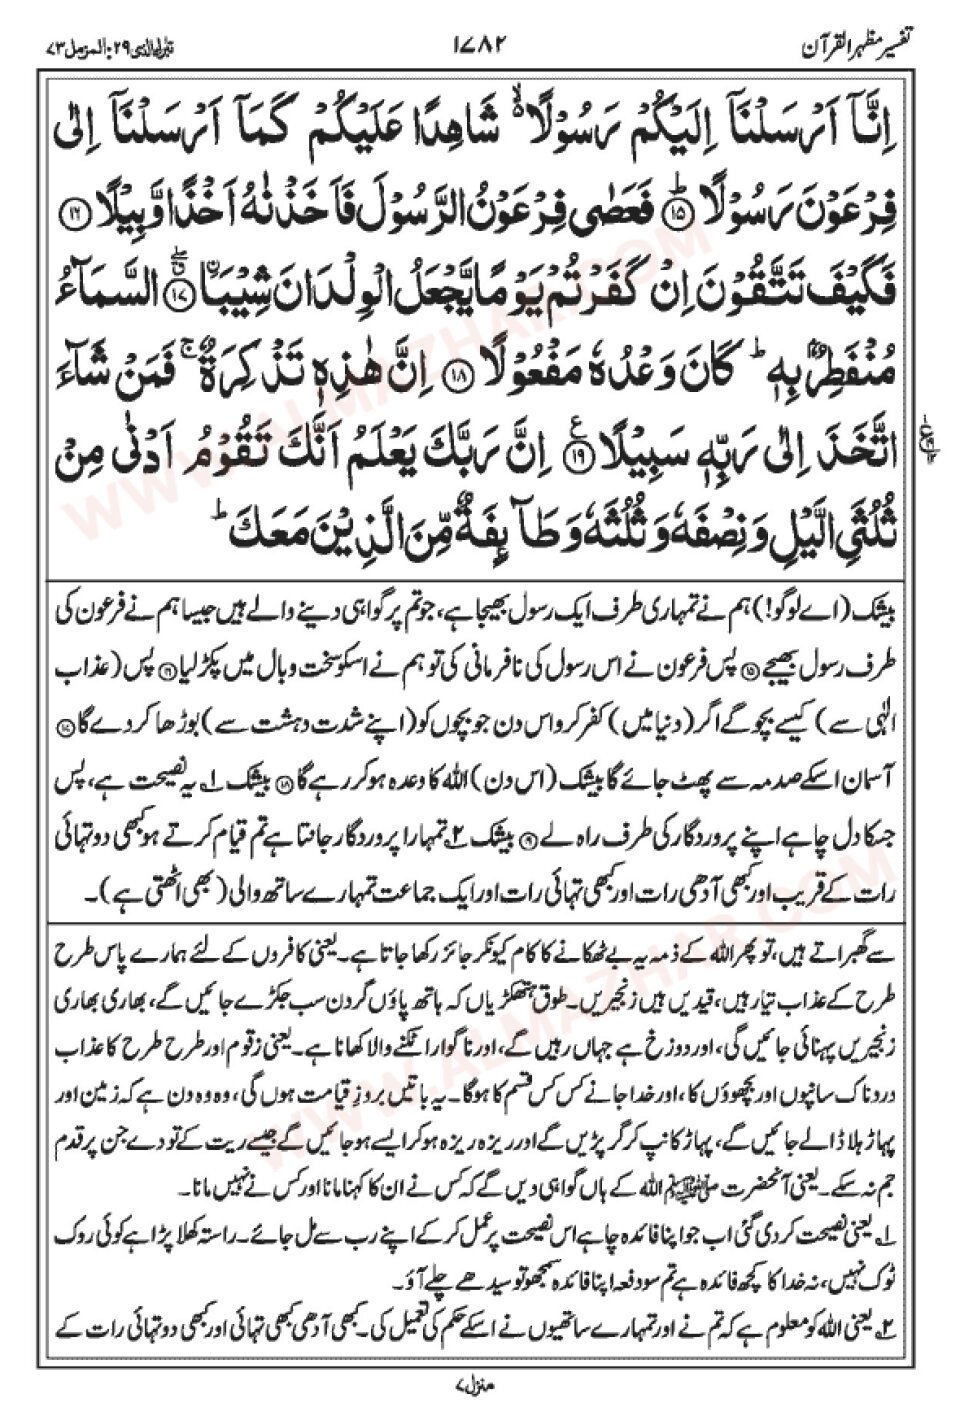 تفسیر مظہر القرآن ۱۷۸۲ تبٰرک الذی ۲۹: المزمل ۷۳
اِنَّاۤ اَرْسَلْنَاۤ اِلَیْكُمْ رَسُوْلًا ۙ۬ شَاهِدًا عَلَیْكُمْ كَمَاۤ اَرْسَلْنَاۤ اِلٰی
فِرْعَوْنَ رَسُوْلًا ؕ﴿۱۵﴾ فَعَصٰی فِرْعَوْنُ الرَّسُوْلَ فَاَخَذْنٰهُ اَخْذًا وَّبِیْلًا ﴿۱۶﴾
فَكَیْفَ تَتَّقُوْنَ اِنْ كَفَرْتُمْ یَوْمًا یَّجْعَلُ الْوِلْدَانَ شِیْبَاۨ ﴿۱۷﴾ السَّمَآءُ
مُنْفَطِرٌۢ بِهٖ ؕ كَانَ وَعْدُهٗ مَفْعُوْلًا ﴿۱۸﴾ اِنَّ هٰذِهٖ تَذْكِرَةٌ ۚ فَمَنْ شَآءَ
اتَّخَذَ اِلٰی رَبِّهٖ سَبِیْلًا ﴿۱۹﴾ اِنَّ رَبَّكَ یَعْلَمُ اَنَّكَ تَقُوْمُ اَدْنٰی مِنْ
ثُلُثَیِ الَّیْلِ وَنِصْفَهٗ وَثُلُثَهٗ وَطَآىِٕفَةٌ مِّنَ الَّذِیْنَ مَعَكَ ؕ
بیشک (اے لوگو!) ہم نے تمہاری طرف ایک رسول بھیجا ہے، جو تم پر گواہی دینے والے ہیں جیسا ہم نے فرعون کی
طرف رسول بھیجے ⑮ پس فرعون نے اس رسول کی نافرمانی کی تو ہم نے اسکو سخت وبال میں پکڑ لیا ⑯ پس (عذاب
الٰہی سے) کیسے بچو گے اگر (دنیا میں) کفر کرو اس دن جو بچوں کو (اپنے شدت دہشت سے) بوڑھا کر دے گا ⑰
آسمان اسکے صدمہ سے پھٹ جائے گا بیشک (اس دن) اللہ کا وعدہ ہو کر رہے گا ⑱ بیشک ۱؎ یہ نصیحت ہے، پس
جسکا دل چاہے اپنے پروردگار کی طرف راہ لے ⑲ بیشک ۲؎ تمہارا پروردگار جانتا ہے تم قیام کرتے ہو کبھی دو تہائی
رات کے قریب اور کبھی آدھی رات اور کبھی تہائی رات اور ایک جماعت تمہارے ساتھ والی (بھی اٹھتی ہے)۔
سے گھبراتے ہیں، تو پھر اللہ کے ذمہ یہ بے ٹھکانے کا کام کیونکر جائز رکھا جاتا ہے۔ یعنی کافروں کے لئے ہمارے پاس طرح
طرح کے عذاب تیار ہیں، قیدیں ہیں زنجیریں۔ طوق ہتھکڑیاں کہ ہاتھ پاؤں گردن سب جکڑے جائیں گے، بھاری بھاری
زنجیریں پہنائی جائیں گی، اور دوزخ ہے جہاں رہیں گے، اور ناگوار اٹکنے والا کھانا ہے۔ یعنی زقوم اور طرح طرح کا عذاب
دردناک سانپوں اور بچھوؤں کا، اور خدا جانے کس کس قسم کا ہوگا۔ یہ باتیں بروز قیامت ہوں گی، وہ وہ دن ہے کہ زمین اور
پہاڑ ہلا ڈالے جائیں گے، پہاڑ کانپ کر گر پڑیں گے اور ریزہ ریزہ ہو کر ایسے ہو جائیں گے جیسے ریت کے تودے جن پر قدم
جم نہ سکے۔ یعنی آنحضرت ﷺ اللہ کے ہاں گواہی دیں گے کہ کس نے ان کا کہنا مانا اور کس نے نہیں مانا۔
۱؎ یعنی نصیحت کر دی گئی اب جو اپنا فائدہ چاہے اس نصیحت پر عمل کر کے اپنے رب سے مل جائے۔ راستہ کھلا پڑا ہے کوئی روک
ٹوک نہیں، نہ خدا کا کچھ فائدہ ہے تم سو دفعہ اپنا فائدہ سمجھو تو سیدھے چلے آؤ۔
۲؎ یعنی اللہ کو معلوم ہے کہ تم نے اور تمہارے ساتھیوں نے اسکے حکم کی تعمیل کی۔ کبھی آدھی کبھی تہائی اور کبھی دو تہائی رات کے
منزل ۷
WWW.ALMAZHAR.COM
WWW.ALMAZHAR.COM